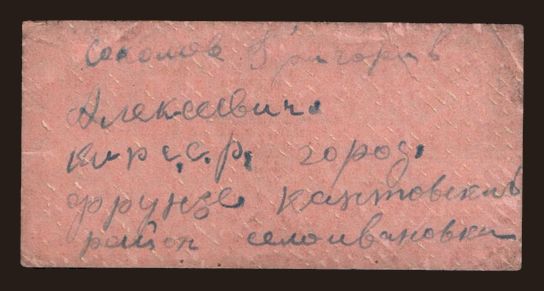 Соколов Григорив
Алексеевич.
Кир с.с.р, город.
Фрунзе Кантовскив
район селоивановка